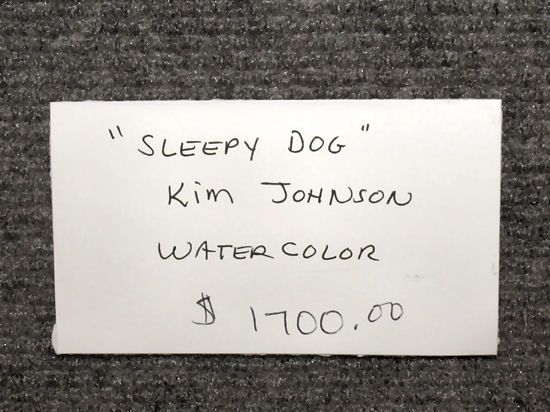 "SLEEPY DOG"
Kim JOHNSON
WATERCOLOR
$ 1700.00